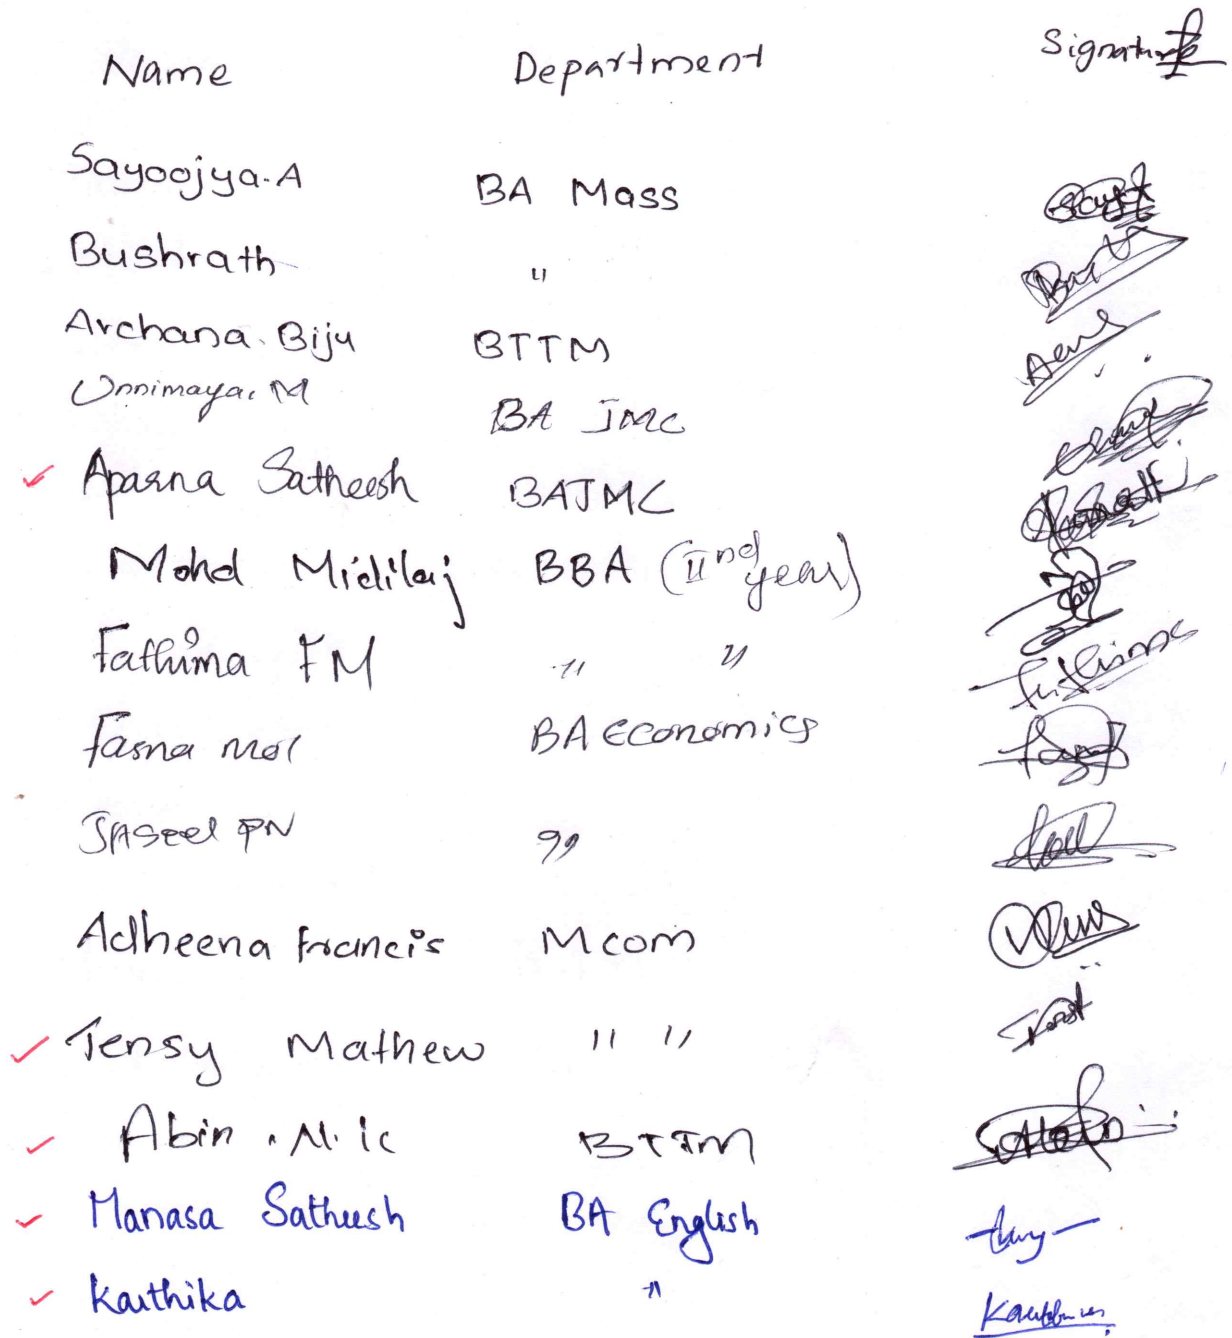 Name Department Signature
Sayoojya.A BA Mass
Bushrath "
Archana. Biju BTTM
Unnimaya. M BA JMC
Aparna Satheesh BAJMC
Mohd Midilaj BBA (IInd year)
Fathima FM " "
Fasna mol BA Economics
JASEEl PN "
Adheena francis Mcom
Jensy Mathew " "
Abin . M. k BTTM
Manasa Satheesh BA English
Karthika "